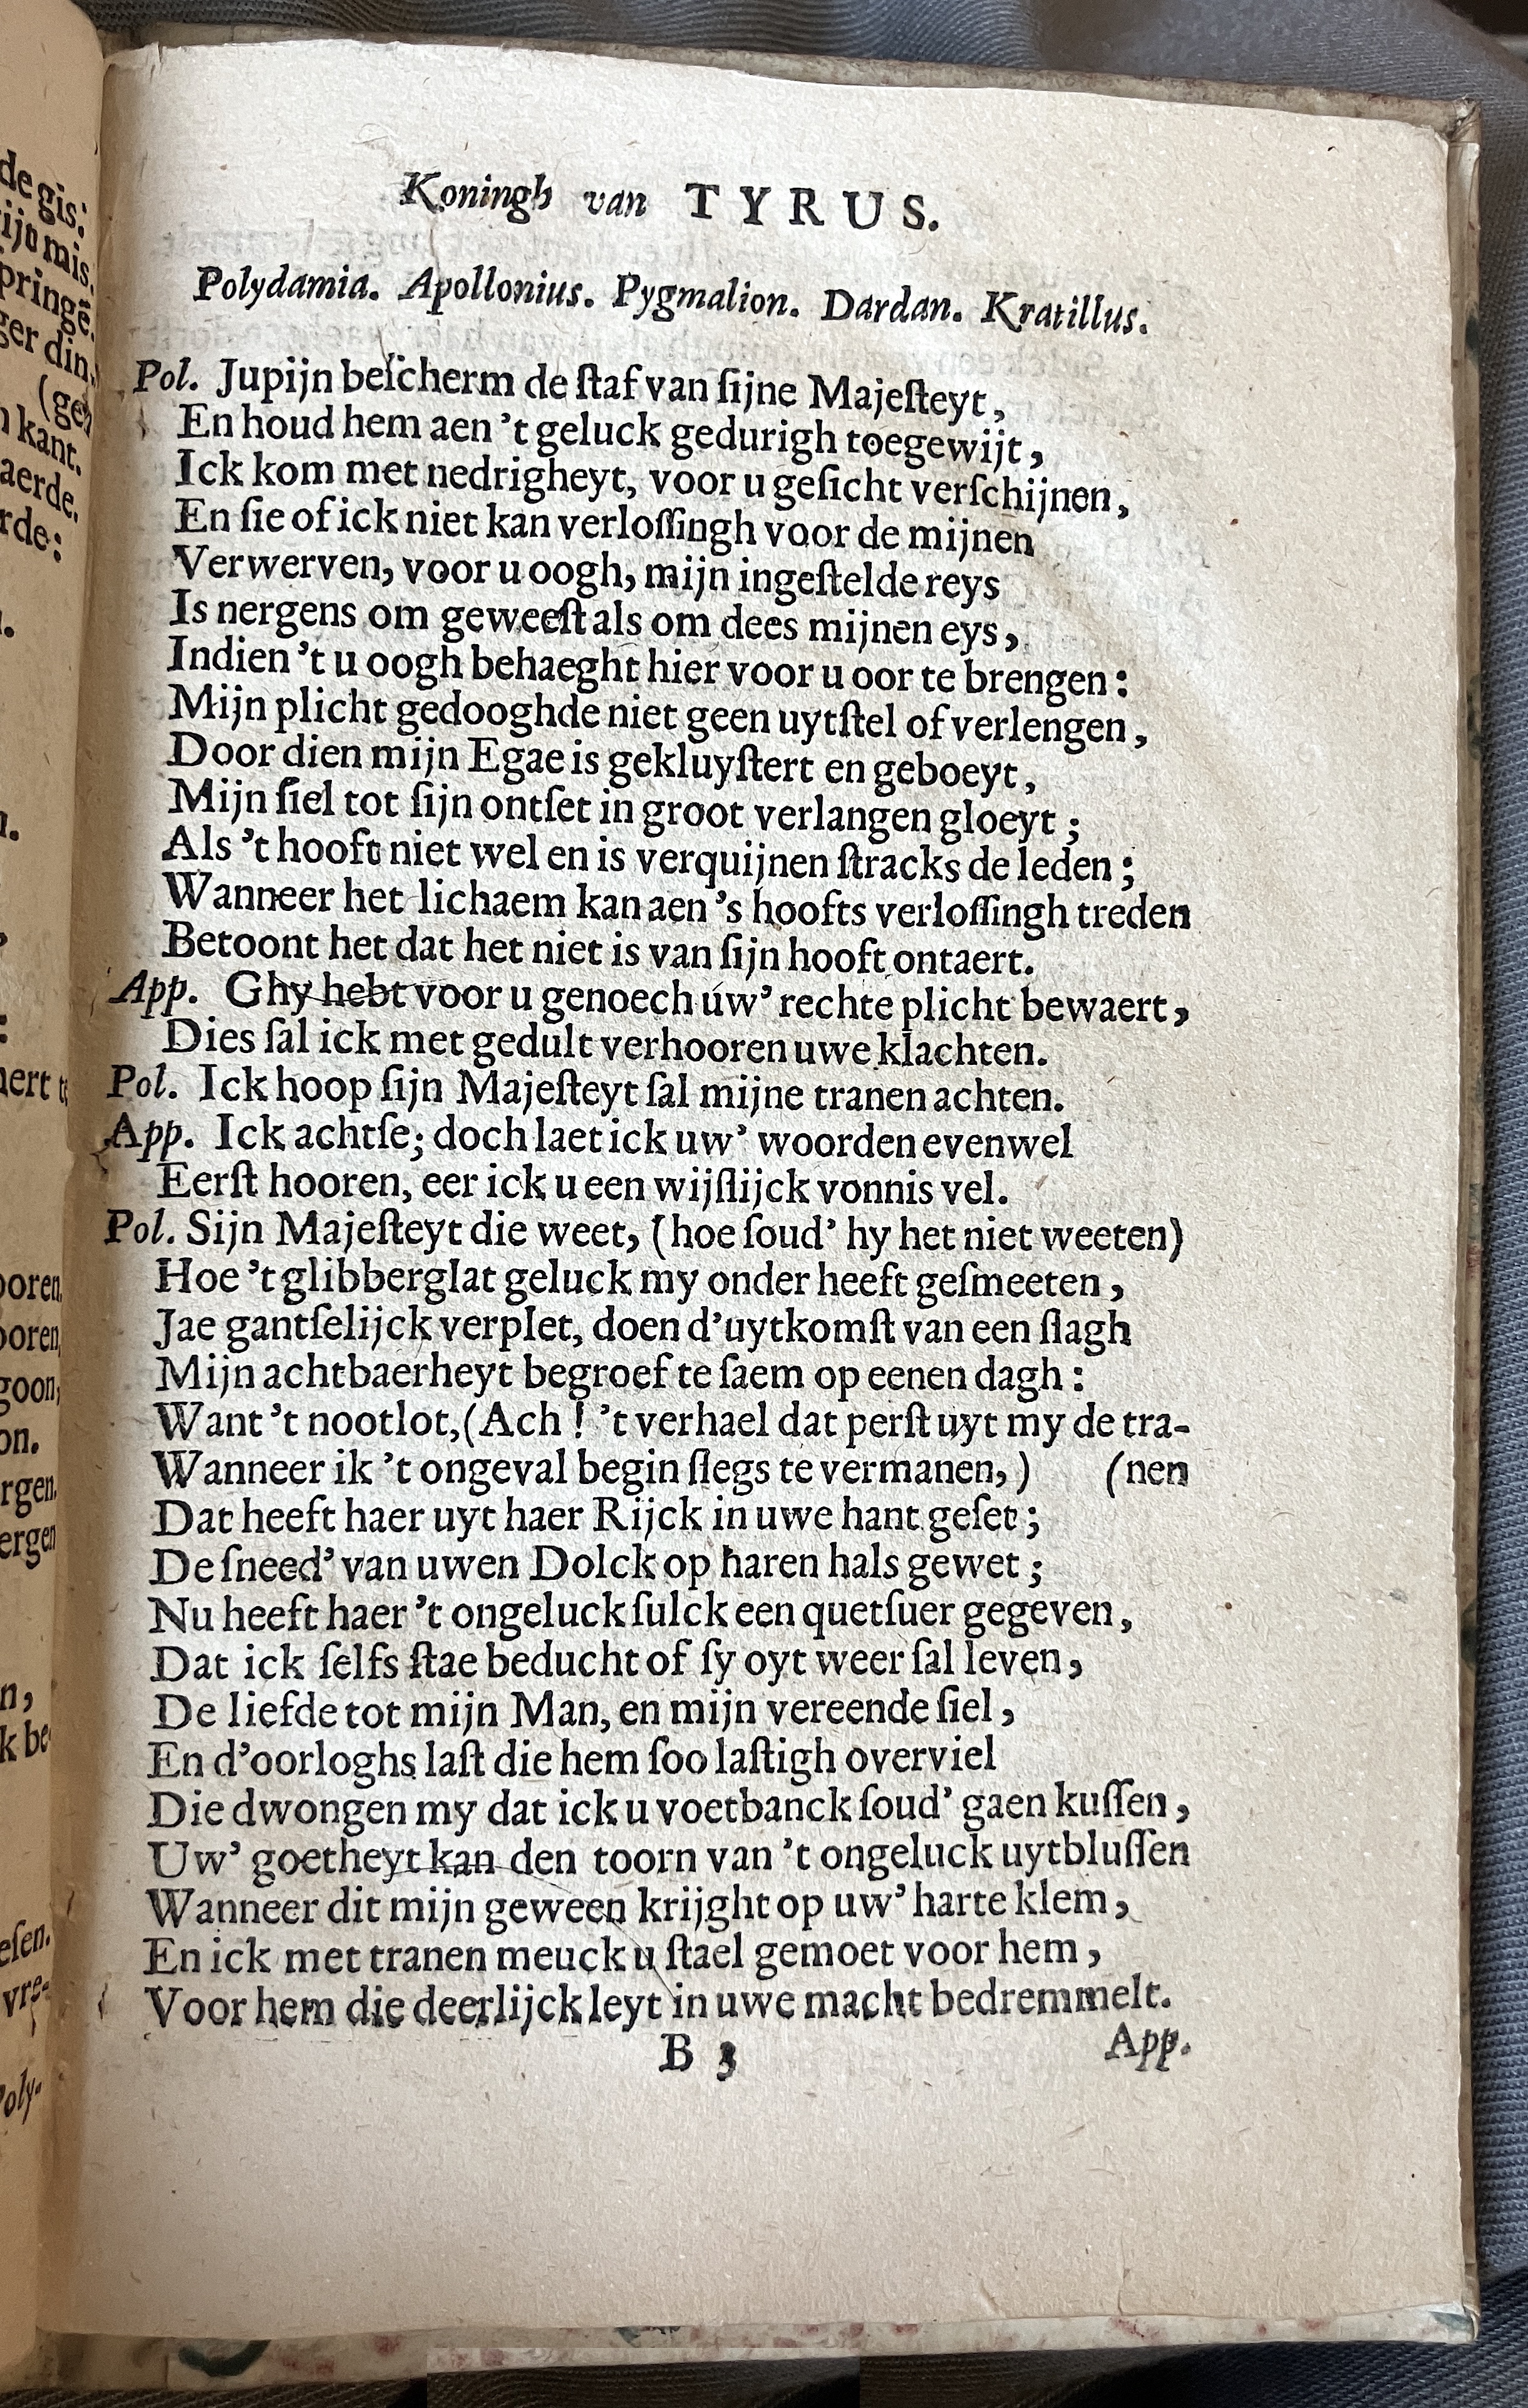 Koningh van TYRUS.
Polydamia. Apollonius. Pygmalion. Dardan. Kratillus.
Pol. Jupijn beſcherm de ſtaf van ſijne Majeſteyt,
En houd hem aen 't geluck gedurigh toegewijt,
Ick kom met nedrigheyt, voor u geſicht verſchijnen,
En ſie of ick niet kan verloſſingh voor de mijnen
Verwerven, voor u oogh, mijn ingeſtelde reys
Is nergens om geweeſt als om dees mijnen eys,
Indien 't u oogh behaeght hier voor u oor te brengen:
Mijn plicht gedooghde niet geen uytſtel of verlengen,
Door dien mijn Egae is gekluyſtert en geboeyt,
Mijn ſiel tot ſijn ontſet in groot verlangen gloeyt;
Als 't hooft niet wel en is verquijnen ſtracks de leden;
Wanneer het lichaem kan aen 's hoofts verloſſingh treden
Betoont het dat het niet is van ſijn hooft ontaert.
App. Ghy hebt voor u genoech úw' rechte plicht bewaert,
Dies ſal ick met gedult verhooren uwe klachten.
Pol. Ick hoop ſijn Majeſteyt ſal mijne tranen achten.
App. Ick achtſe; doch laet ick uw' woorden evenwel
Eerſt hooren, eer ick u een wijſlijck vonnis vel.
Pol. Sijn Majeſteyt die weet, (hoe ſoud' hy het niet weeten)
Hoe 't glibberglat geluck my onder heeft geſmeeten,
Jae gantſelijck verplet, doen d'uytkomſt van een ſlagh
Mijn achtbaerheyt begroef te ſaem op eenen dagh:
Want 't nootlot, (Ach! 't verhael dat perſt uyt my de tra-
Wanneer ik 't ongeval begin ſlegs te vermanen,) (nen
Dat heeft haer uyt haer Rijck in uwe hant geſet;
De ſneed' van uwen Dolck op haren hals gewet;
Nu heeft haer 't ongeluck ſulck een quetſuer gegeven,
Dat ick ſelfs ſtae beducht of ſy oyt weer ſal leven,
De liefde tot mijn Man, en mijn vereende ſiel,
En d'oorloghs laſt die hem ſoo laſtigh overviel
Die dwongen my dat ick u voetbanck ſoud' gaen kuſſen,
Uw' goetheyt kan den toorn van 't ongeluck uytbluſſen
Wanneer dit mijn geween krijght op uw' harte klem,
En ick met tranen meuck u ſtael gemoet voor hem,
Voor hem die deerlijck leyt in uwe macht bedremmelt.
B 3 App.